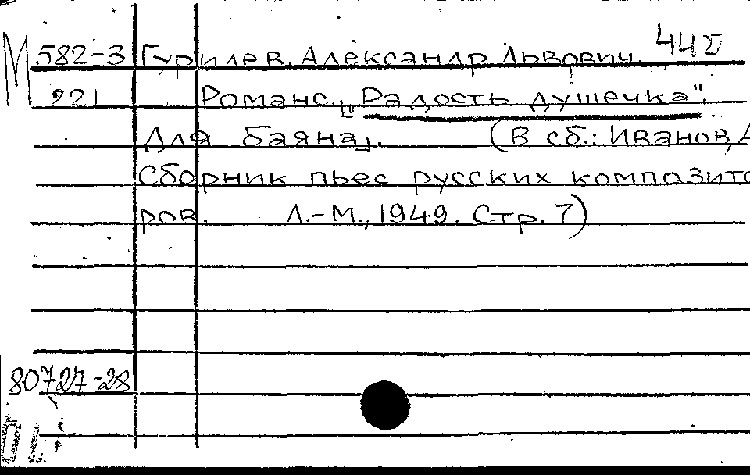 М 582-3 Гурилев, Александр Львович. 44
221 Романс „Радость душечка".
Для баяна. (В сб.: Иванов, А
Сборник пьес русских композито
ров. Л.-М., 1949. Стр. 7)
80727-28